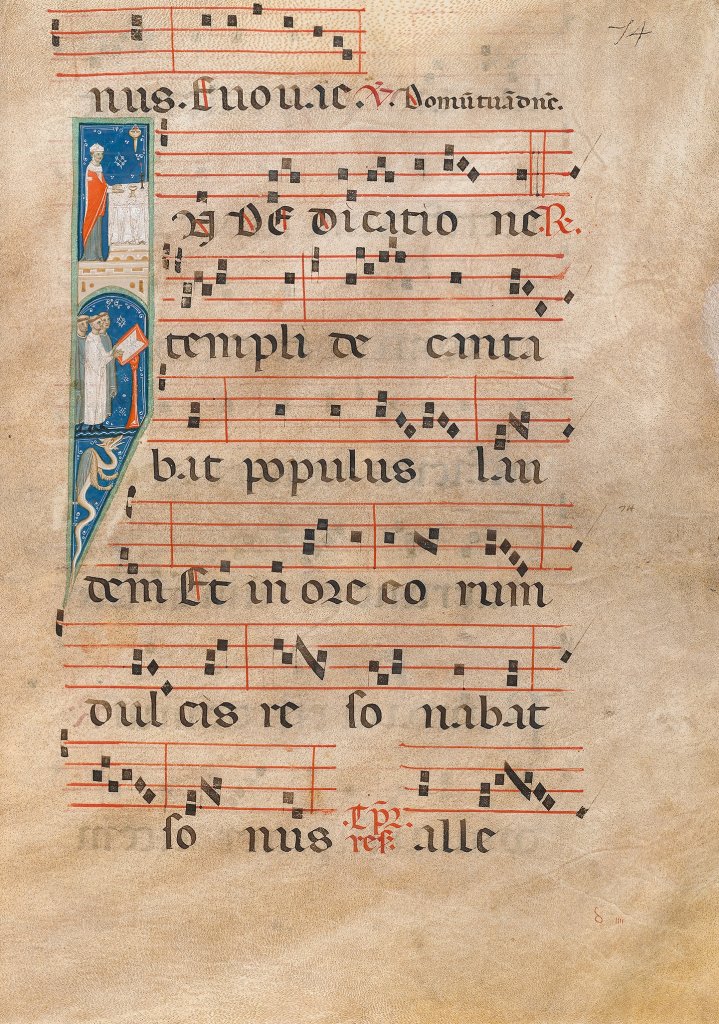 74
nus. Euouae. V. Domũ tuã dñe.
IN DEDICATIONE R.
templi de canta
bat populus lau
dem Et in ore eo rum
dul cis re so nabat
so nus alle